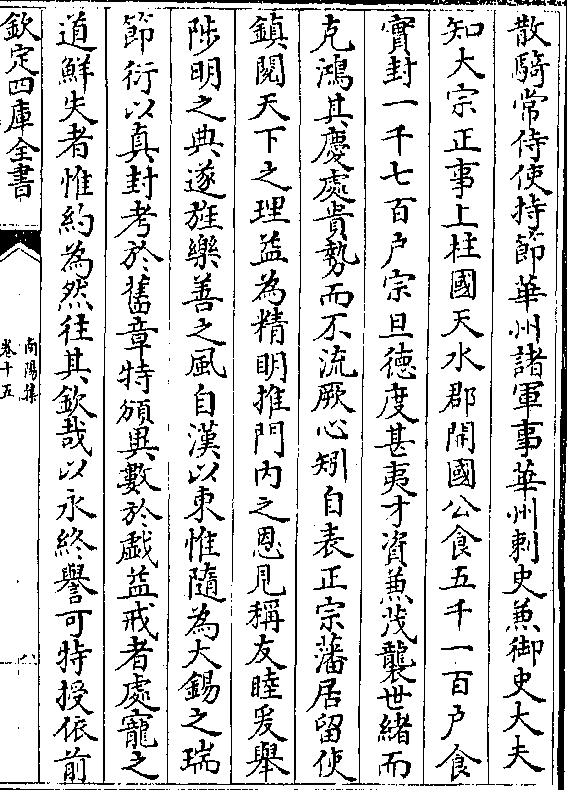 散騎常侍使持節華州諸軍事華州刺史兼御史大夫
知大宗正事上柱國天水郡開國公食五千一百户食
實封一千七百户宗旦徳度甚夷才資兼茂襲世緒而
克鴻其慶處貴勢而不流厥心矧自表正宗藩居留使
鎮閲天下之理益為精明推門内之恩見稱友睦爰舉
陟明之典遂旌樂善之風自漢以東惟隨為大錫之瑞
節衍以真封考於舊章特頒異數於戯益戒者處寵之
道鮮失者惟約為然往其欽哉以永終譽可特授依前
欽定四庫全書
南陽集
卷十五